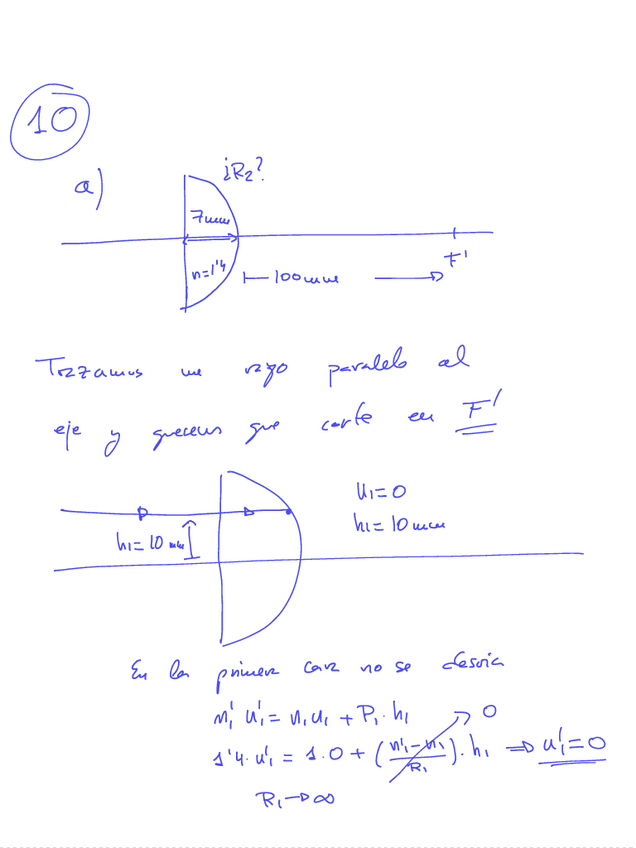 10
a)
¿R2?
7mm
n=1'4
100mm
F'
Trazamos un rayo paralelo al
eje y queremos que corte en F'
u1=0
h1=10mm
h1=10mm
En la primera cara no se desvia
n1' u1' = n1u1 + P1·h1
0
1'4·u1' = 1·0 + (n1'-n1/R1)·h1 ⇒ u1'=0
R1→∞